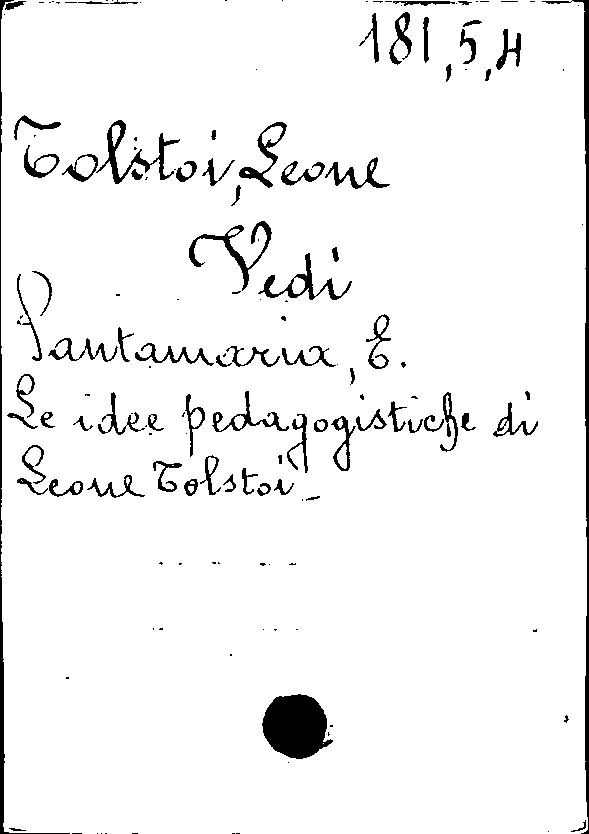 181,5,4
Tolstoi, Leone
Vedi
Santamaria, E.
Le idee pedagogistiche di
Leone Tolstoi -